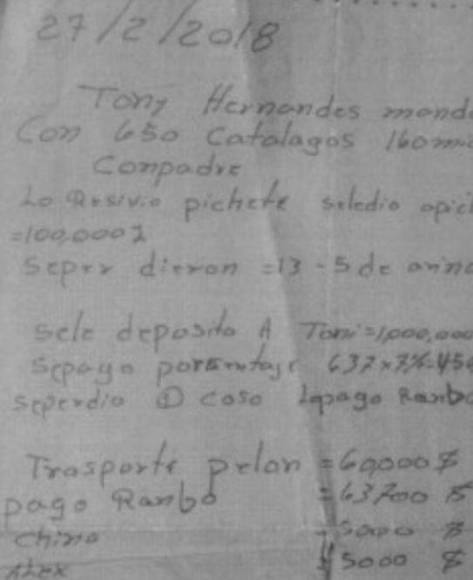 27/2/2018
Tony Hernandes mando
Con 650 Catalagos 160 mil
Conpadre
Lo Resivio pichete seledio apich
=100,000
Seper dieron =13 - 5 de
sele deposito A Toni=1,000,000
sepago porsentaje 637x7%=45
seperdio ① coso Lopago Ranbo
Trasporte pelon =60,000 $
pago Ranbo =63700 $
chino 5000 $
Alex 5000 $